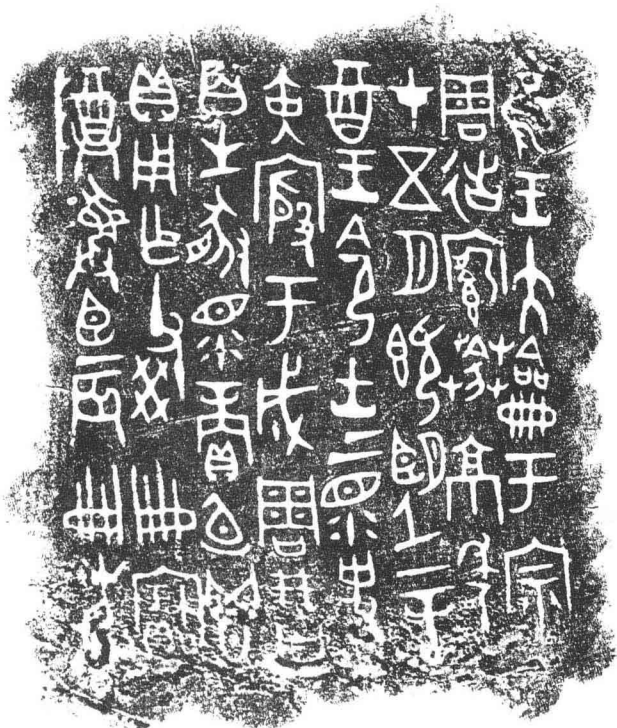 隹王大龠于宗
周𢓊𩜹𦮙京年
才五月既望辛
酉王令士上眔史
寅殷于成周
百生豚眔賞卣鬯
貝用乍父癸寶
尊彝臣辰冊冊先